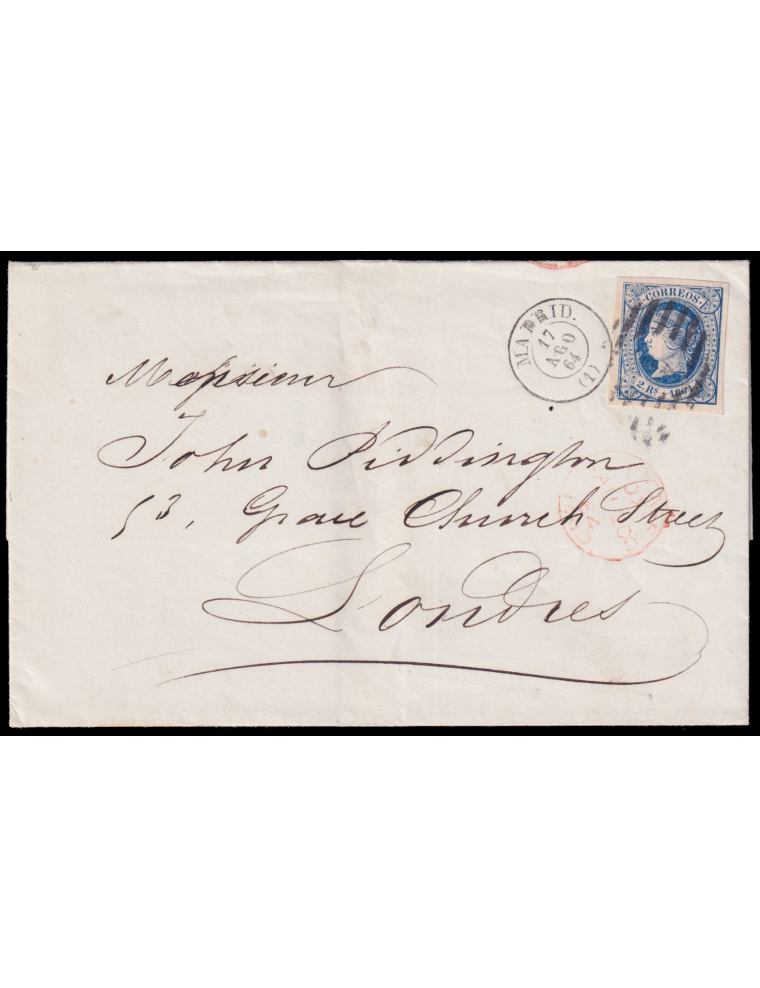 CORREOS
2. Rs 1864
MADRID.
17
AGO
64
(1)
Monsieur
John Piddington
53, Grace Church Street
Londres